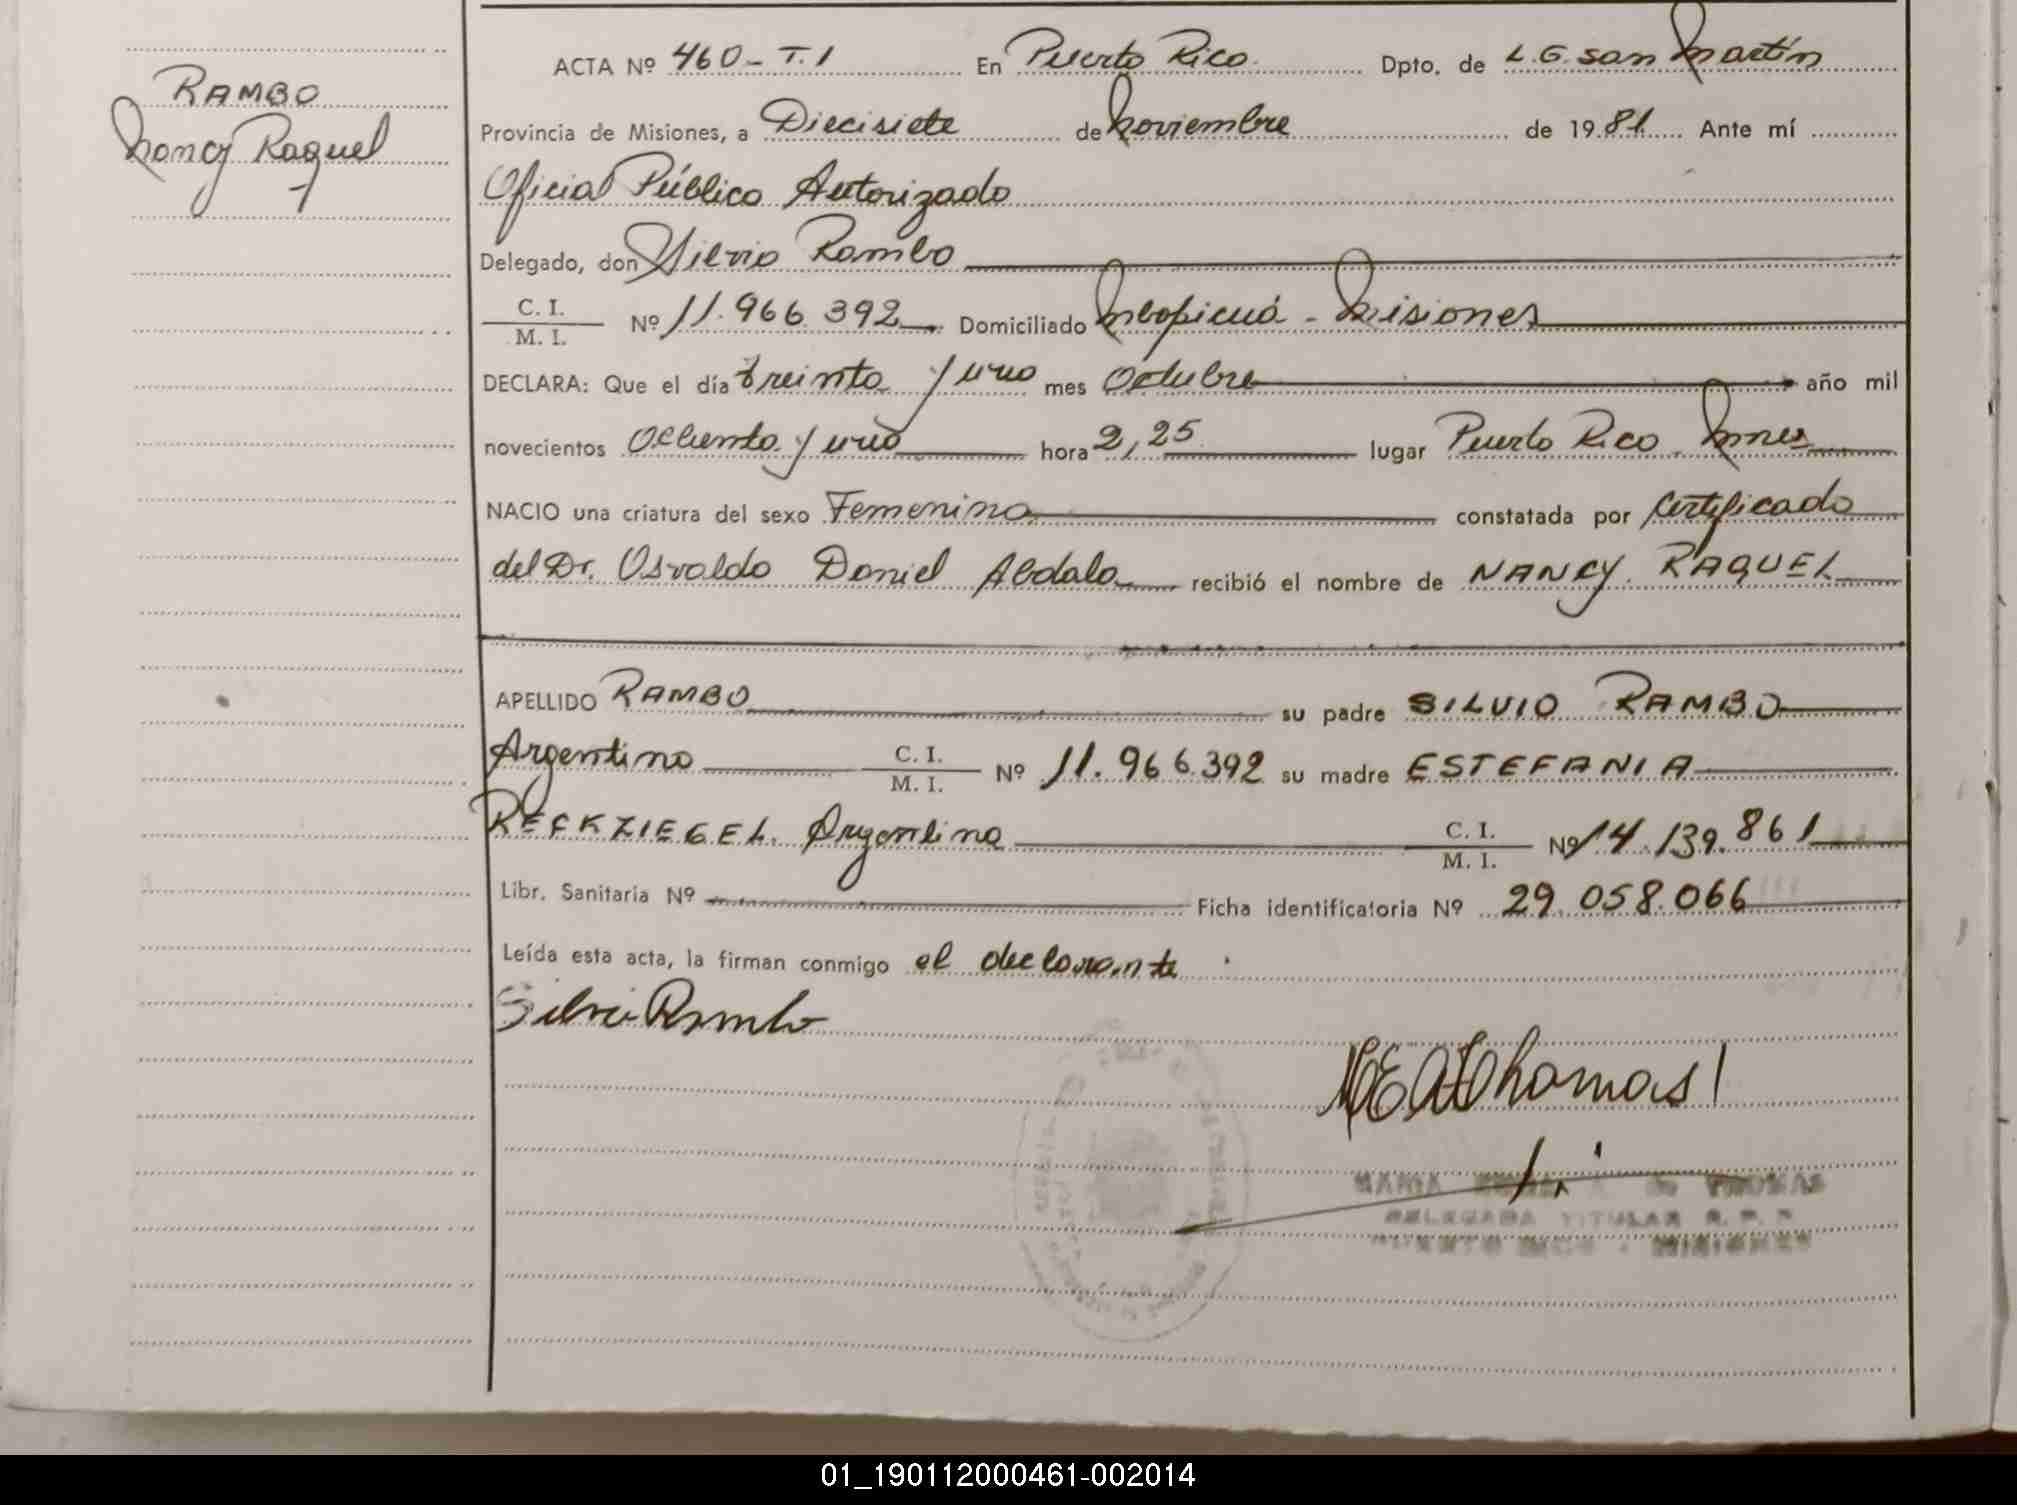 RAMBO
Nancy Raquel
ACTA Nº 460-T.1 En Puerto Rico. Dpto. de L.G. San Martín
Provincia de Misiones, a Diecisiete de Noviembre de 1981. Ante mí
Oficial Público Autorizado
Delegado, don Silvio Rambo
C. I.
M. I. Nº 11.966.392 Domiciliado Mbopicuá - Misiones
DECLARA: Que el día treinta y uno mes Octubre año mil
novecientos Ochenta y uno hora 2,25 lugar Puerto Rico Mnes
NACIO una criatura del sexo Femenino constatada por Certificado
del Dr. Osvaldo Daniel Abdala recibió el nombre de NANCY RAQUEL
APELLIDO RAMBO su padre SILVIO RAMBO
Argentino C. I.
M. I. Nº 11.966.392 su madre ESTEFANIA
RECKZIEGEL. Argentina C. I.
M. I. Nº 14.139.861
Libr. Sanitaria Nº Ficha identificatoria Nº 29.058.066
Leída esta acta, la firman conmigo el declarante.
Silvio Rambo
Thomas
MARIA DE THOMAS
DELEGADA TITULAR R. P. P.
PUERTO RICO - MISIONES
01_190112000461-002014